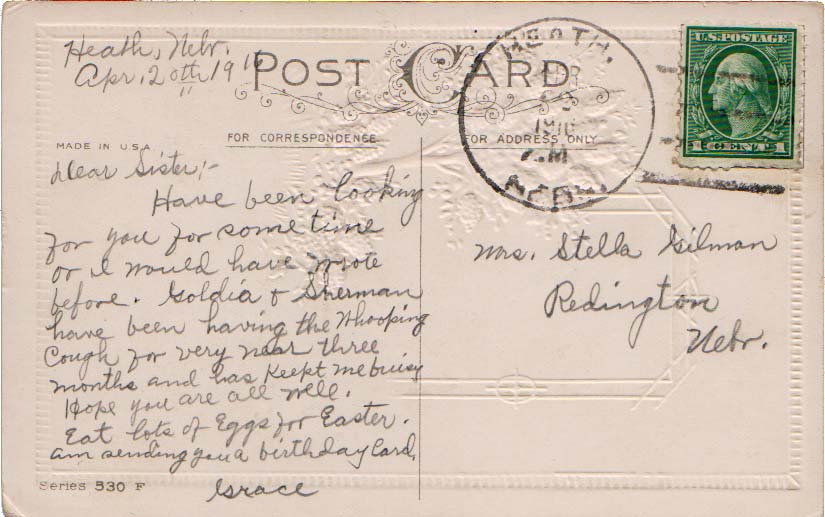 Heath, Nebr.
Apr. 20th 1916
POST CARD
HEATH.
APR
1916
A.M.
NEBR.
U.S. POSTAGE
1 CENT 1
MADE IN U.S.A
FOR CORRESPONDENCE
FOR ADDRESS ONLY
Dear Sister;-
Have been looking
for you for some time
or I would have wrote
before. Goldia & Sherman
have been having the Whooping
Cough for very near three
months and has Keept me buisy
Hope you are all well.
Eat lots of Eggs for Easter.
am sending you a birthday Card.
Grace
Mrs. Stella Gilman
Redington
Nebr.
Series 530 F